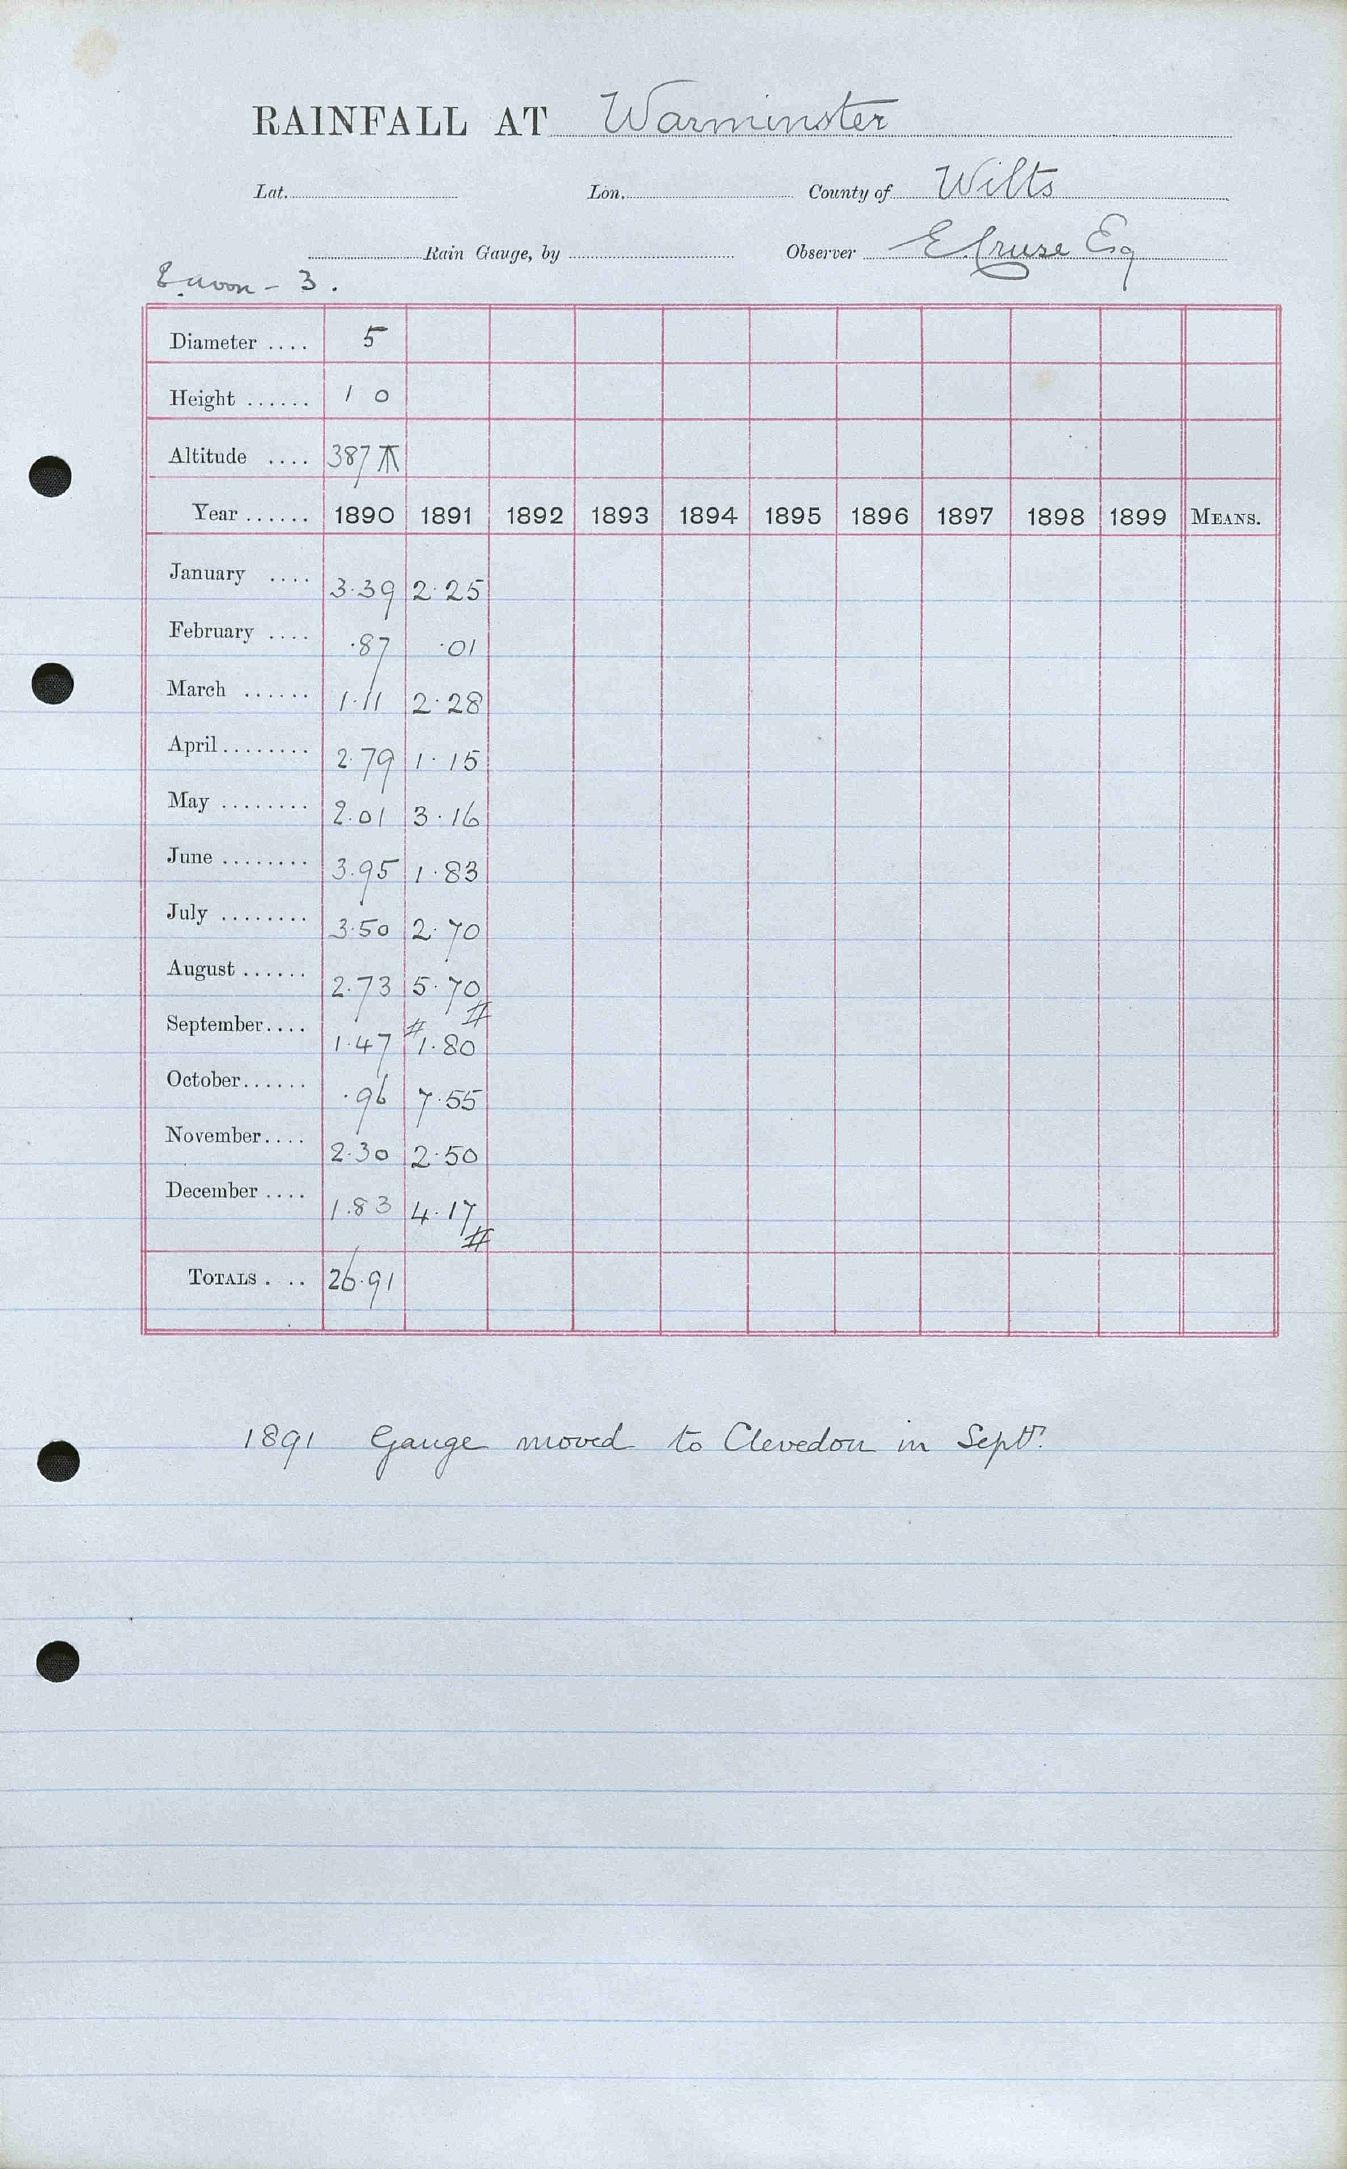 RAINFALL AT Warminster
Lat. Lon. County of Wilts
Rain Gauge, by Observer E. Cruse Esq
Avon - 3.
Diameter .... 5
Height ...... 1 0
Altitude .... 387
Year ...... 1890 1891 1892 1893 1894 1895 1896 1897 1898 1899 MEANS.
January .... 3.39 2.25
February .... .87 .01
March ...... 1.11 2.28
April ........ 2.79 1.15
May ........ 2.01 3.16
June ........ 3.95 1.83
July ........ 3.50 2.70
August ...... 2.73 5.70 #
September.... 1.47 # 1.80
October...... .96 7.55
November.... 2.30 2.50
December .... 1.83 4.17 #
TOTALS . .. 26.91
1891 Gauge moved to Clevedon in Sept.